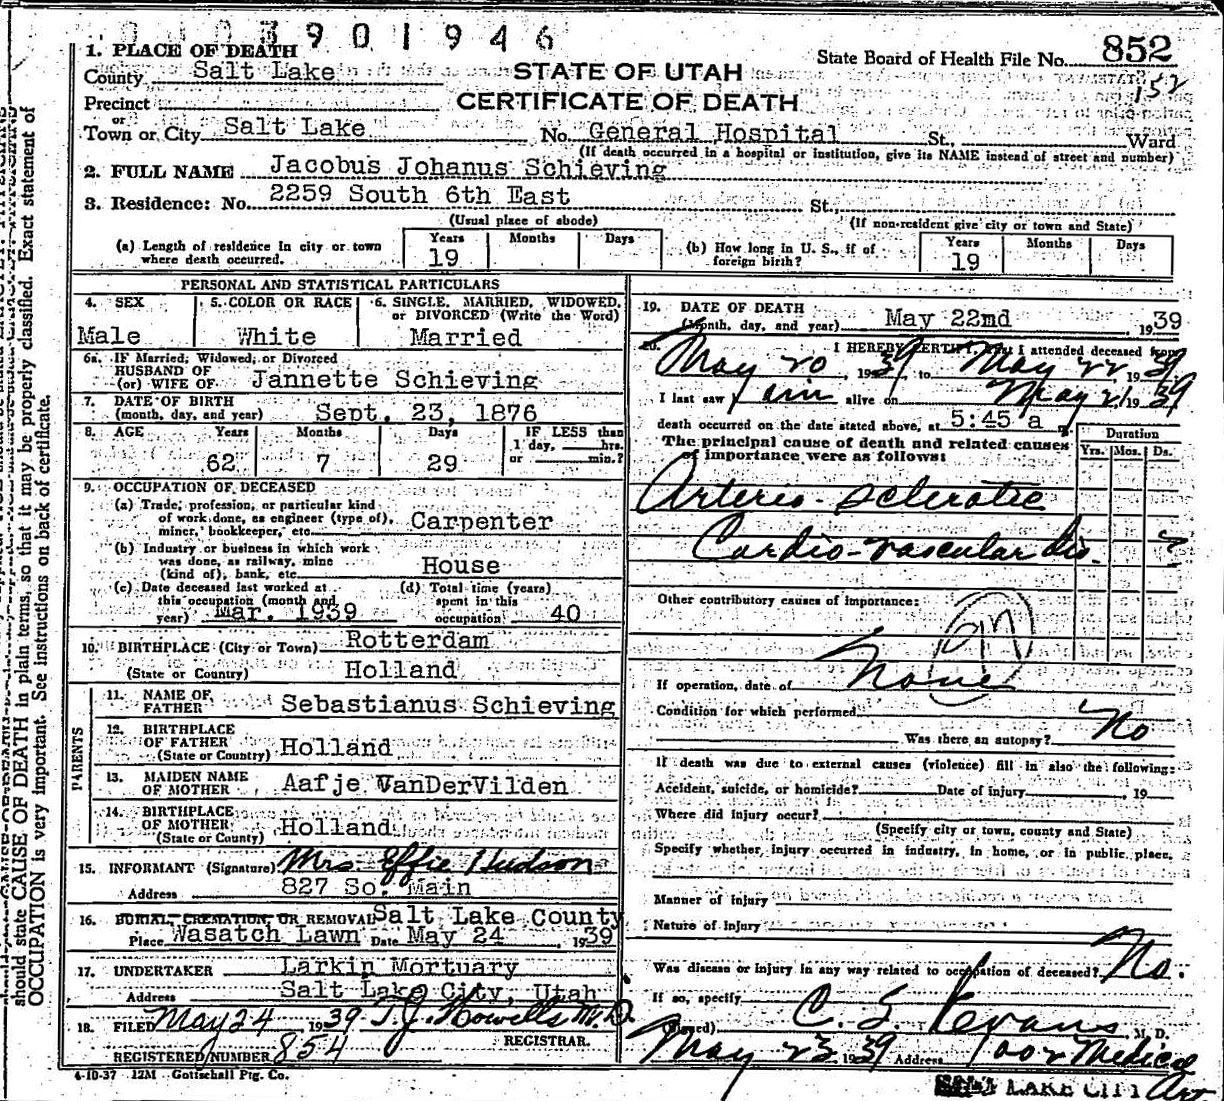 0 0 0 3 9 0 1 9 4 6
1. PLACE OF DEATH
County Salt Lake
Precinct
or
Town or City Salt Lake
STATE OF UTAH
CERTIFICATE OF DEATH
State Board of Health File No. 852
152
No. General Hospital St., Ward
(If death occurred in a hospital or institution, give its NAME instead of street and number)
2. FULL NAME Jacobus Johanus Schieving
3. Residence: No. 2259 South 6th East St.,
(Usual place of abode)
(If non-resident give city or town and State)
(a) Length of residence in city or town where death occurred. Years 19 Months Days
(b) How long in U. S., if of foreign birth? Years 19 Months Days
PERSONAL AND STATISTICAL PARTICULARS
4. SEX Male
5. COLOR OR RACE White
6. SINGLE, MARRIED, WIDOWED, or DIVORCED (Write the Word) Married
6a. IF Married, Widowed, or Divorced
HUSBAND OF
(or) WIFE OF Jannette Schieving
7. DATE OF BIRTH
(month, day, and year) Sept. 23, 1876
8. AGE Years 62 Months 7 Days 29 IF LESS than 1 day, hrs. or min.?
9. OCCUPATION OF DECEASED
(a) Trade, profession, or particular kind of work done, as engineer (type of), miner, bookkeeper, etc. Carpenter
(b) Industry or business in which work was done, as railway, mine (kind of), bank, etc. House
(c) Date deceased last worked at this occupation (month and year) Mar. 1939
(d) Total time (years) spent in this occupation 40
10. BIRTHPLACE (City or Town) Rotterdam
(State or Country) Holland
PARENTS
11. NAME OF FATHER Sebastianus Schieving
12. BIRTHPLACE OF FATHER (State or Country) Holland
13. MAIDEN NAME OF MOTHER Aafje VanDerVilden
14. BIRTHPLACE OF MOTHER (State or Country) Holland
15. INFORMANT (Signature) Mrs. Effie Hudson
Address 827 So. Main
16. BURIAL, CREMATION, OR REMOVAL Salt Lake County
Place Wasatch Lawn Date May 24, 1939
17. UNDERTAKER Larkin Mortuary
Address Salt Lake City, Utah
18. FILED May 24 1939 T. J. Howells M. D.
REGISTRAR.
REGISTERED NUMBER 854
4-10-37 12M Gottschall Ptg. Co.
19. DATE OF DEATH
(Month, day, and year) May 22nd 1939
20. I HEREBY CERTIFY, That I attended deceased from
May 20, 1939, to May 22, 1939
I last saw him alive on May 21 1939
death occurred on the date stated above, at 5:45 a m.
The principal cause of death and related causes of importance were as follows:
Duration
Yrs. Mos. Ds.
Arterio-sclerotic
Cardio-vascular dis. ?
Other contributory causes of importance:
If operation, date of None
Condition for which performed
Was there an autopsy? No
If death was due to external causes (violence) fill in also the following:
Accident, suicide, or homicide? Date of injury , 19
Where did injury occur?
(Specify city or town, county and State)
Specify whether injury occurred in industry, in home, or in public place.
Manner of injury
Nature of injury
Was disease or injury in any way related to occupation of deceased? No.
If so, specify
(Signed) C. S. Evans M. D.
May 23 1939 Address 1002 Medical
Art
SALT LAKE CITY
should state CAUSE OF DEATH in plain terms, so that it may be properly classified. Exact statement of
OCCUPATION is very important. See instructions on back of certificate.